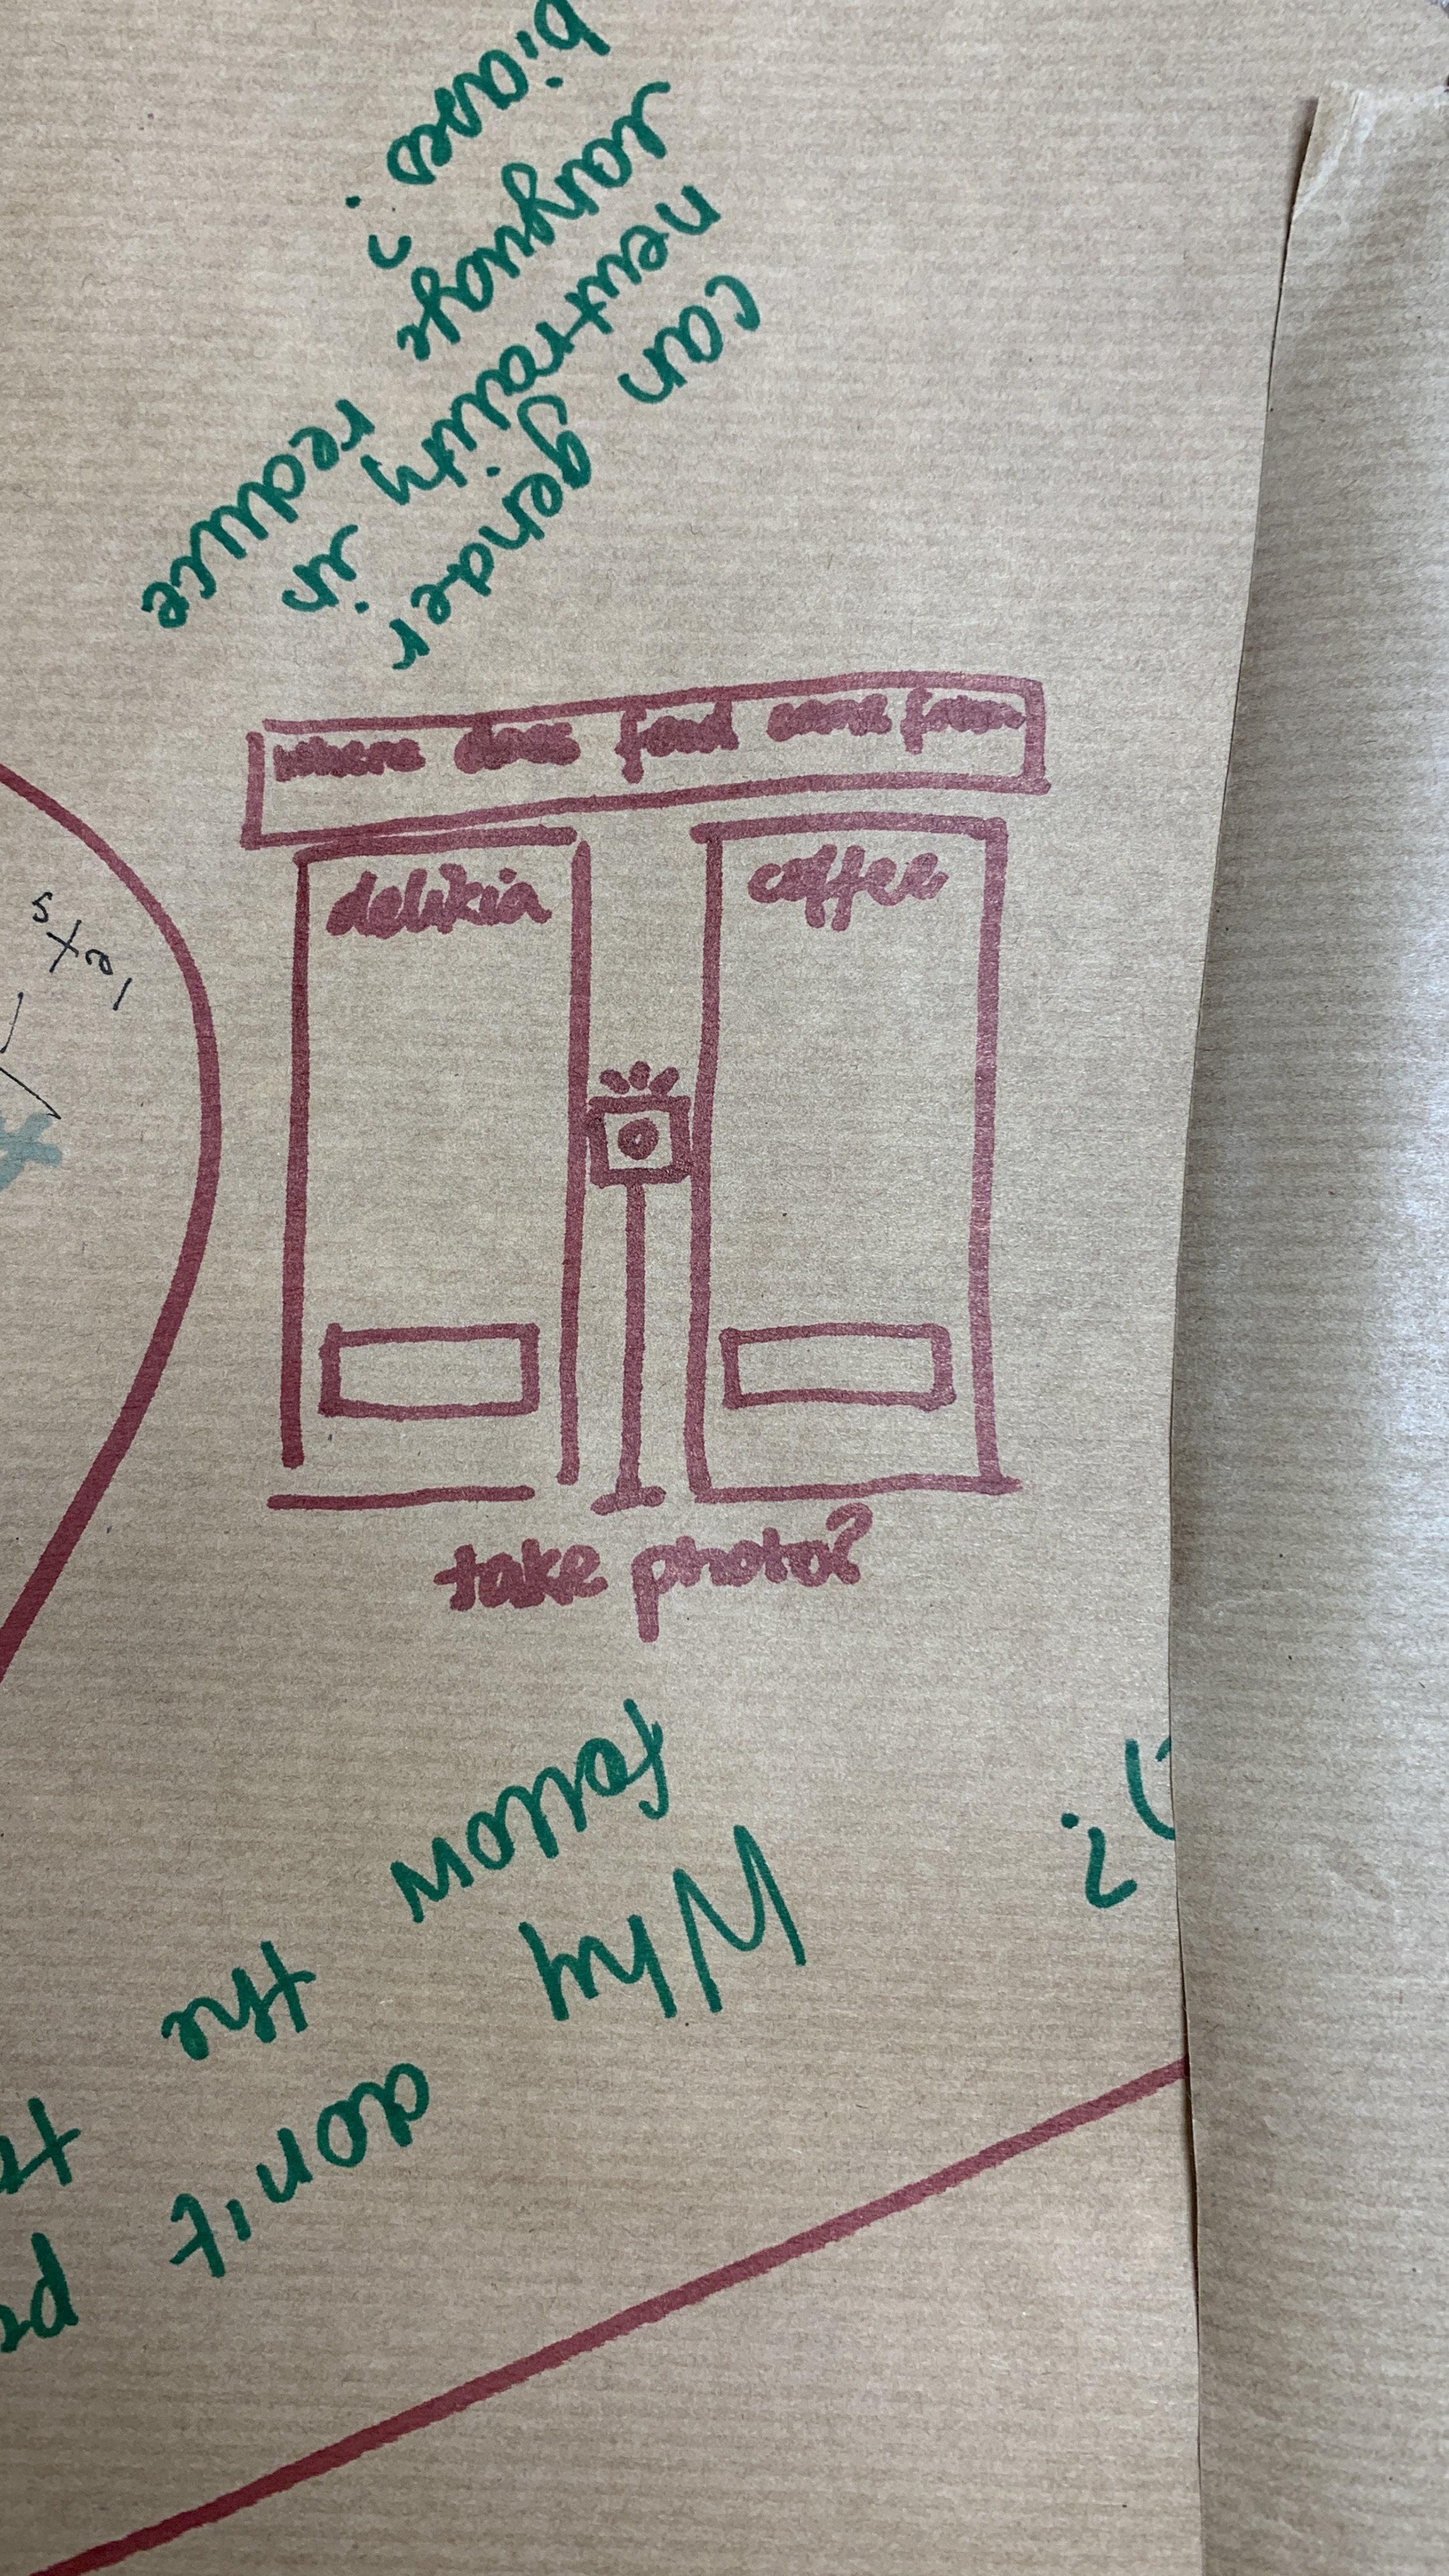 can gender
neutrality in
language reduce
biases?
where does food come from
delikia
coffee
take photo?
Why don't
follow the
?